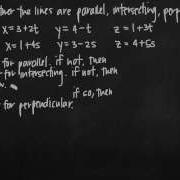 the lines are parallel, intersecting,
x=3+2t y=4-t z=1+3t
x=1+4s y=3-2s z=4+5s
for parallel. if not, then
for intersecting. if not, then
if so, then
for perpendicular.